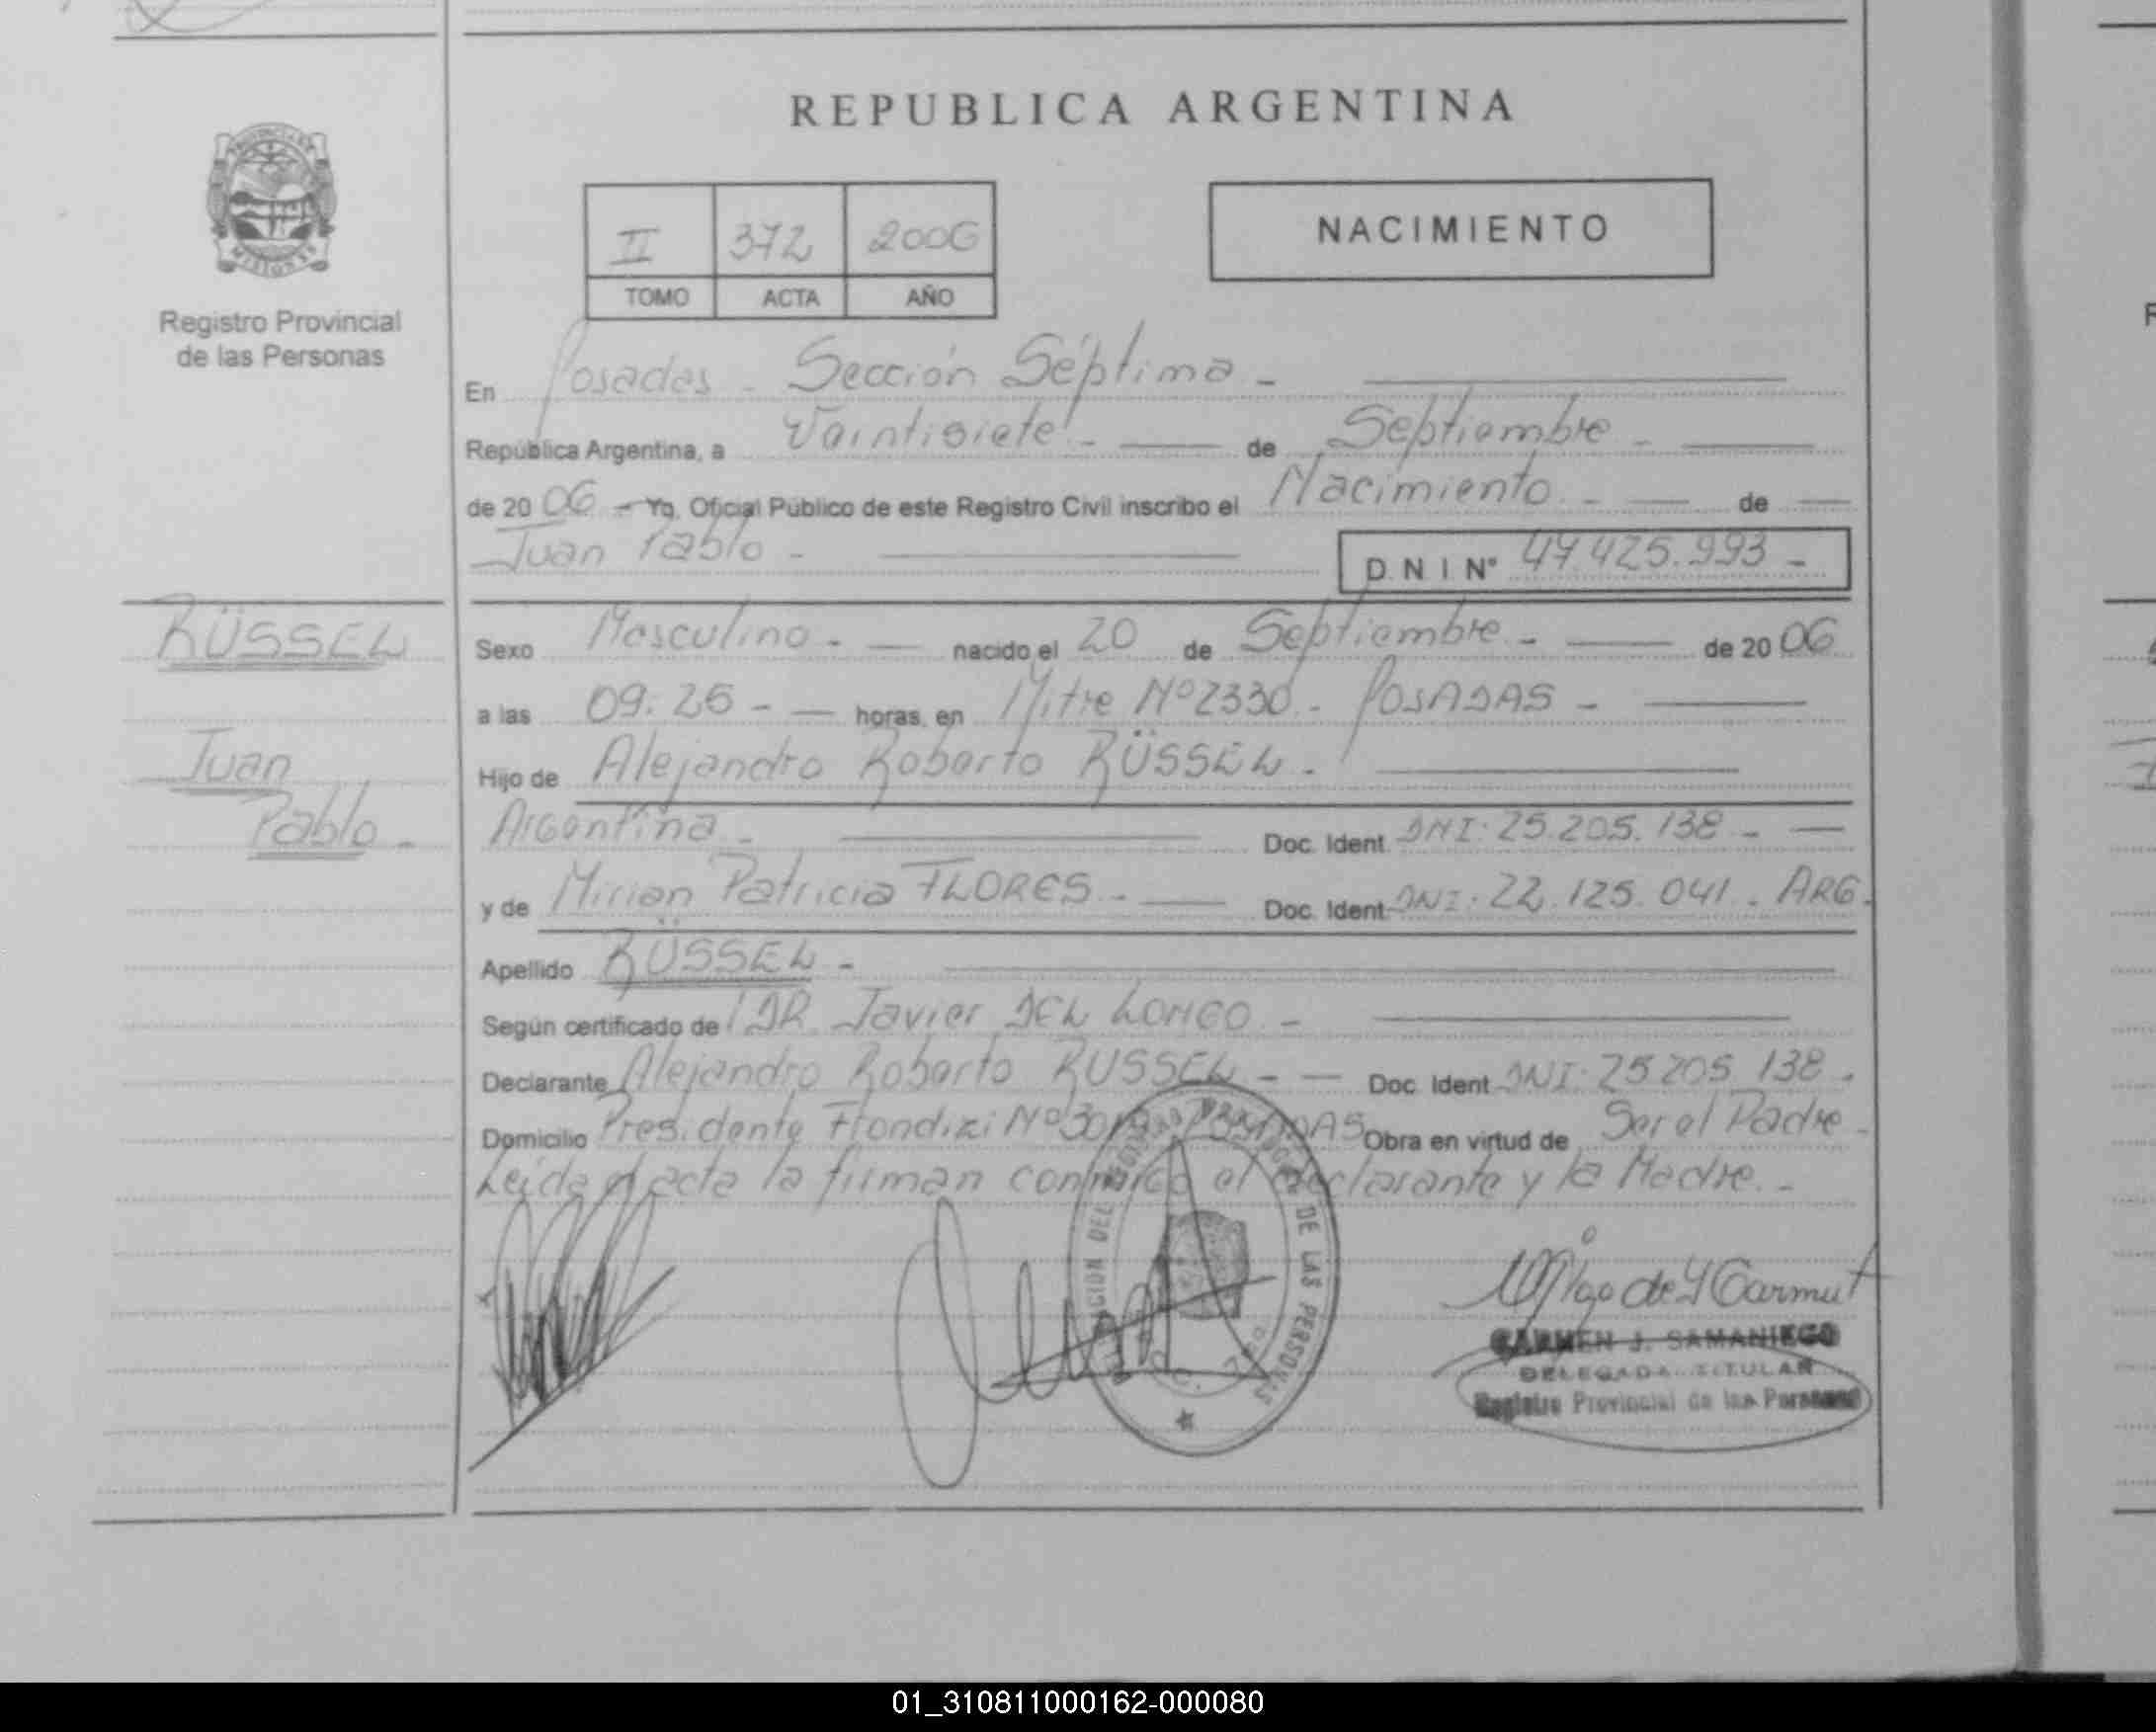 REPUBLICA ARGENTINA
PROVINCIA DE
MISIONES
Registro Provincial
de las Personas
II 372 2006
TOMO ACTA AÑO
NACIMIENTO
En Posadas - Sección Séptima -
República Argentina, a Veintisiete - de Septiembre -
de 20 06 - Yo, Oficial Público de este Registro Civil inscribo el Nacimiento - de
Juan Pablo -
D N I Nº 47.425.993 -
RÜSSEL
Juan
Pablo -
Sexo Masculino - nacido el 20 de Septiembre - de 20 06
a las 09:25 - horas, en Mitre Nº 2330 - POSADAS -
Hijo de Alejandro Roberto RÜSSEL -
Argentina - Doc. Ident. DNI: 25.205.138 -
y de Mirian Patricia FLORES - Doc. Ident. DNI: 22.125.041. ARG.
Apellido RÜSSEL -
Según certificado de DR. Javier DEL LONGO -
Declarante Alejandro Roberto RUSSEL - Doc. Ident. DNI: 25 205 138.
Domicilio Presidente Frondizi Nº POSADAS Obra en virtud de Ser el Padre -
Leída el acta la firman conmigo el declarante y la Madre. -
DE LAS PERSONAS
CARMEN J. SAMANIEGO
DELEGADA TITULAR
Registro Provincial de las Personas
01_310811000162-000080